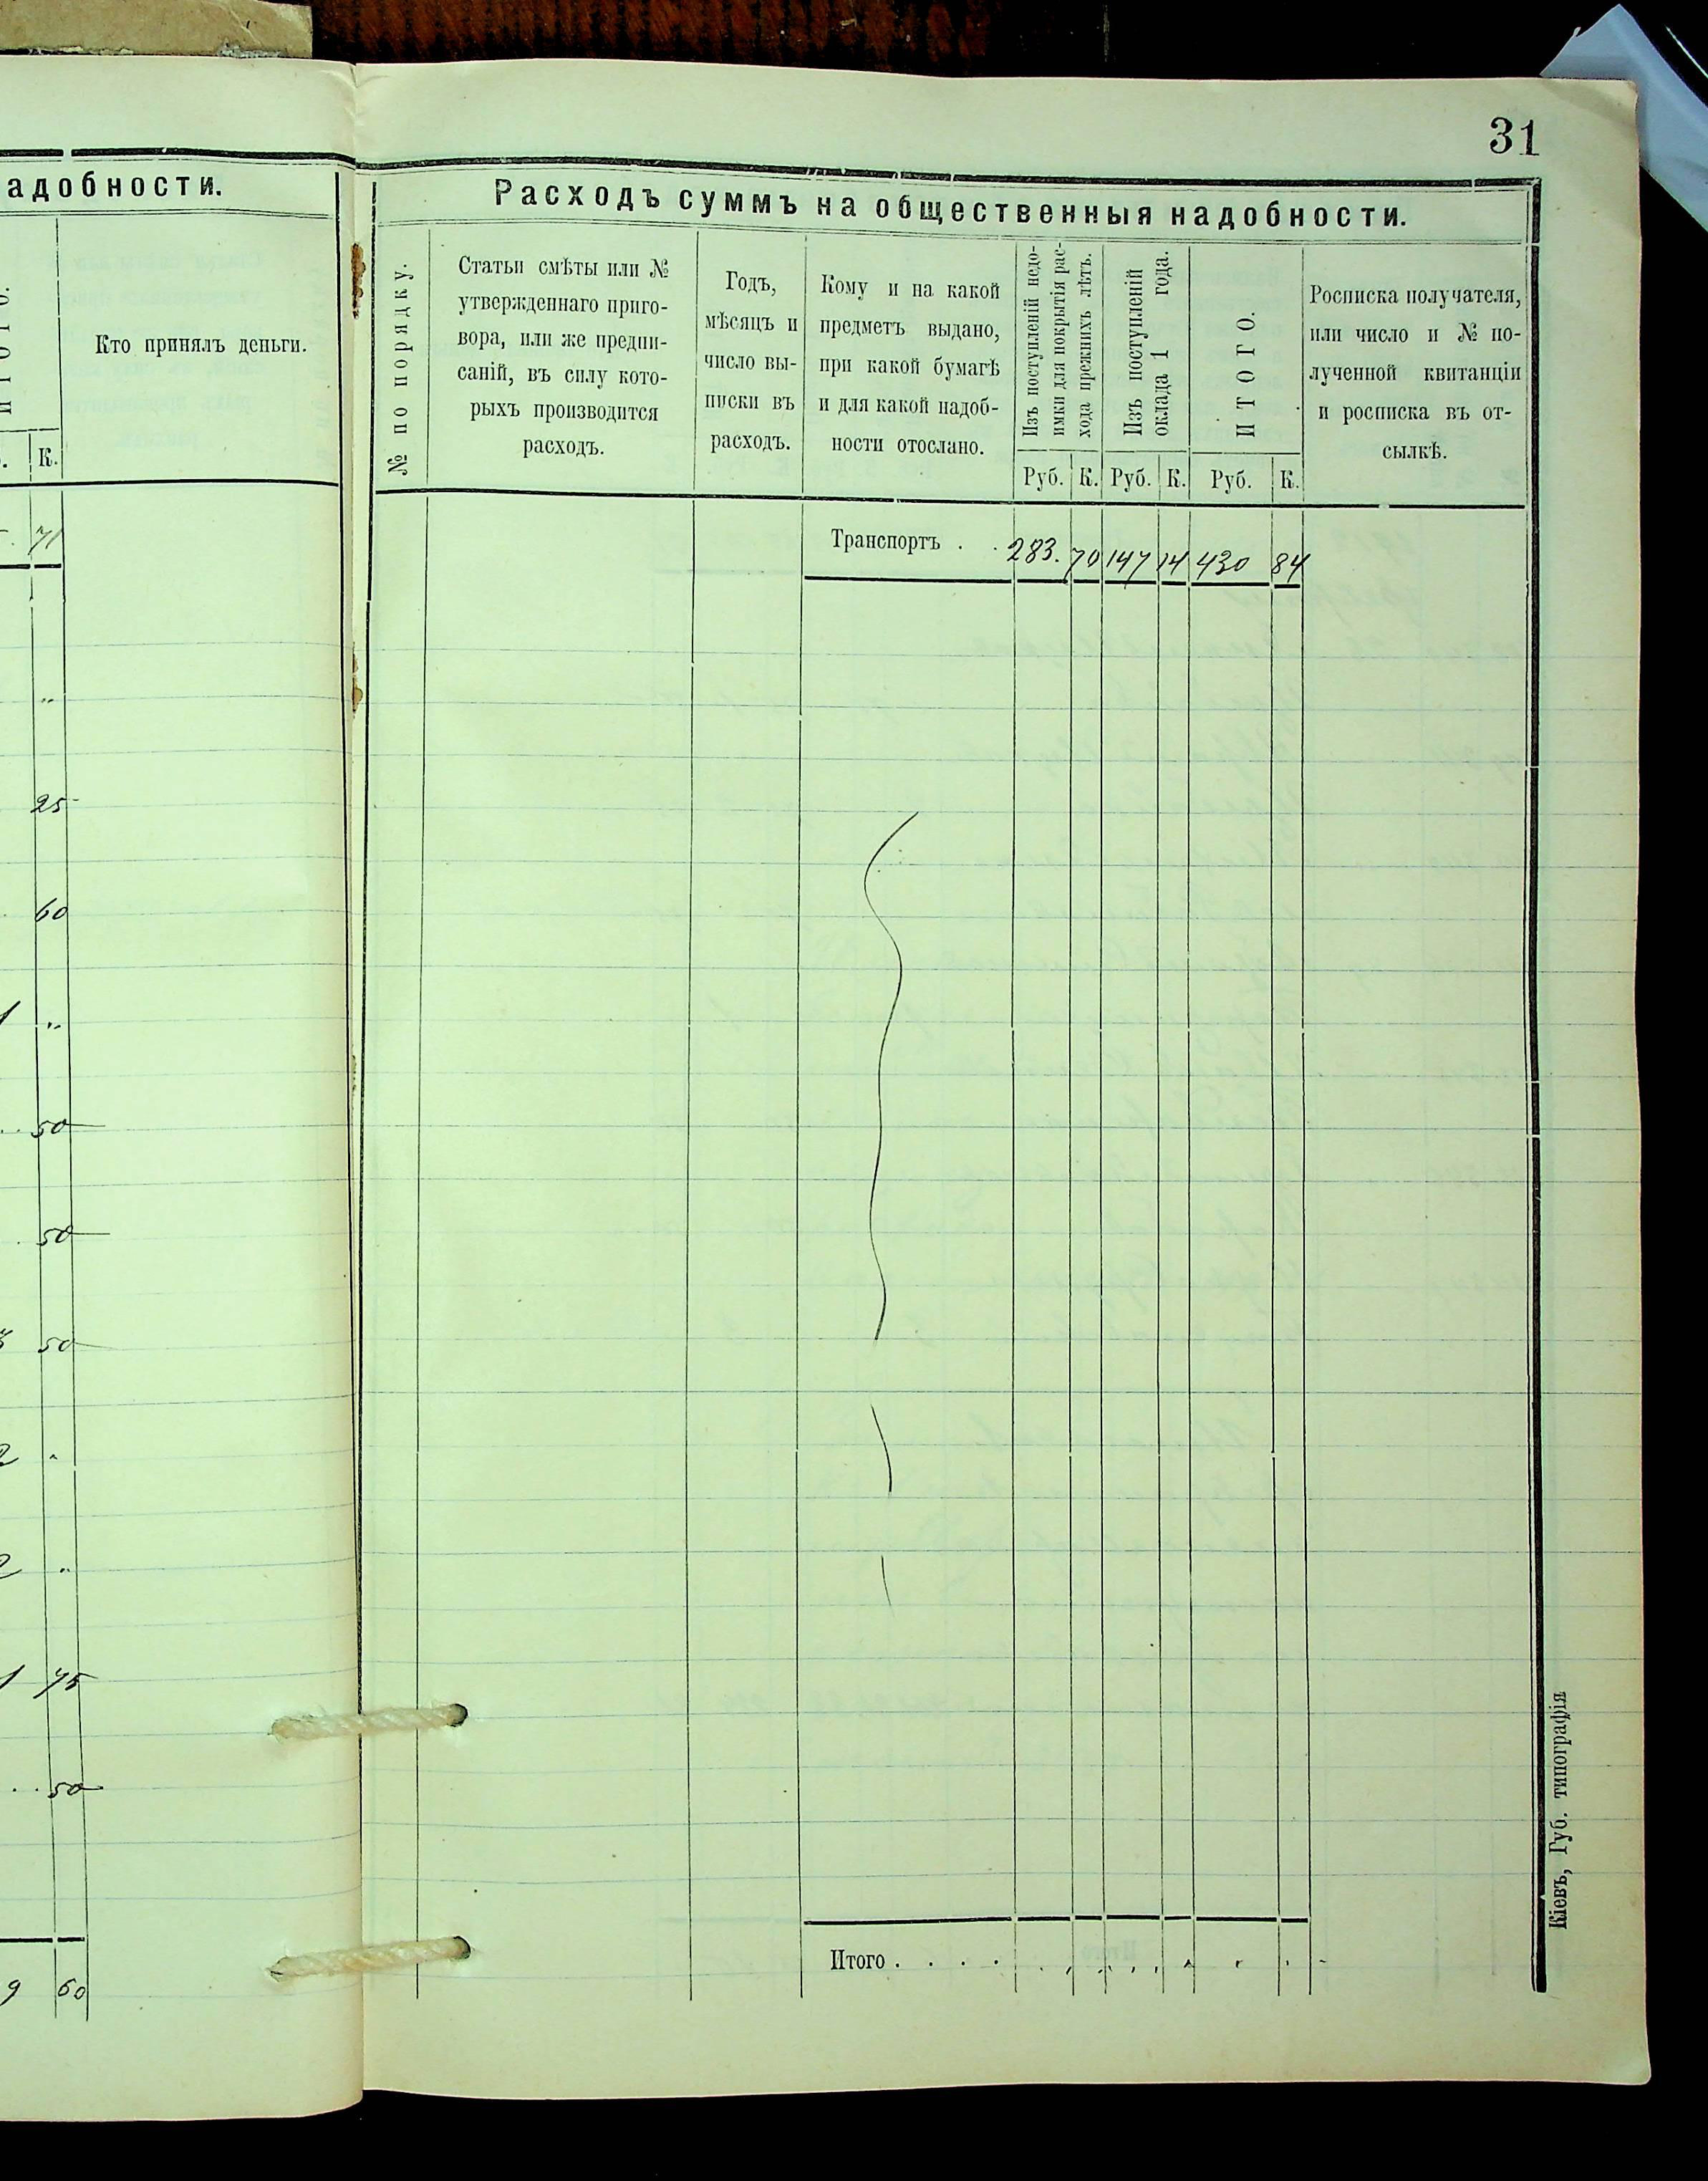 31
адобности.
Кто принялъ деньги.
К.
71
25
60
50
50
50
75
50
9 60
Расходъ суммъ на общественныя надобности.
№ по порядку.
Статьи смѣты или №
утвержденнаго приго-
вора, или же предпи-
саній, въ силу кото-
рыхъ производится
расходъ.
Годъ,
мѣсяцъ и
число вы-
писки въ
расходъ.
Кому и на какой
предметъ выдано,
при какой бумагѣ
и для какой надоб-
ности отослано.
Изъ поступленій недо-
имки для покрытія рас-
хода прежнихъ лѣтъ.
Изъ поступленій
оклада 1 года.
ИТОГО.
Росписка получателя,
или число и № по-
лученной квитанціи
и росписка въ от-
сылкѣ.
Руб. К. Руб. К. Руб. К.
Транспортъ . . 283. 70 147 14 430 84
Итого . . . .
Кіевъ, Губ. типографія